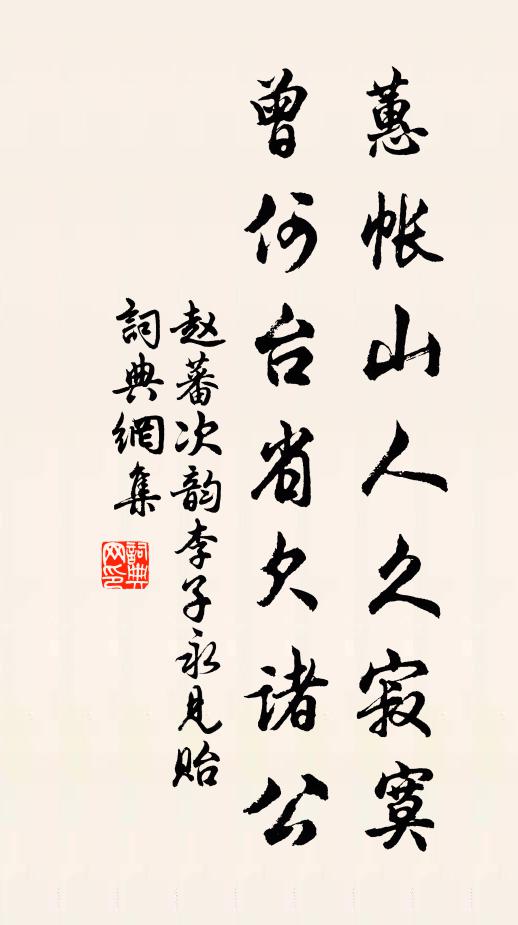 蕙帐山人久寂寞
曾何台省欠诸公
赵蕃次韵李子永见贻
词典網集
詞典
网印